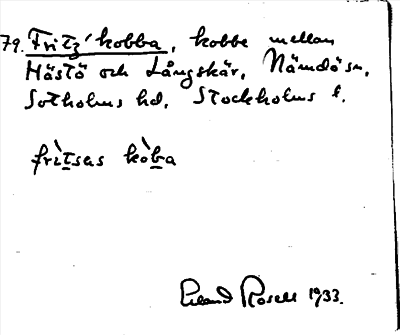 79. Fritz' kobba, kobbe mellan
Hästö och Långskär, Nämdö sn,
Sotholms hd, Stockholms l.
frìtsas kòba
Erland Rosell 1933.